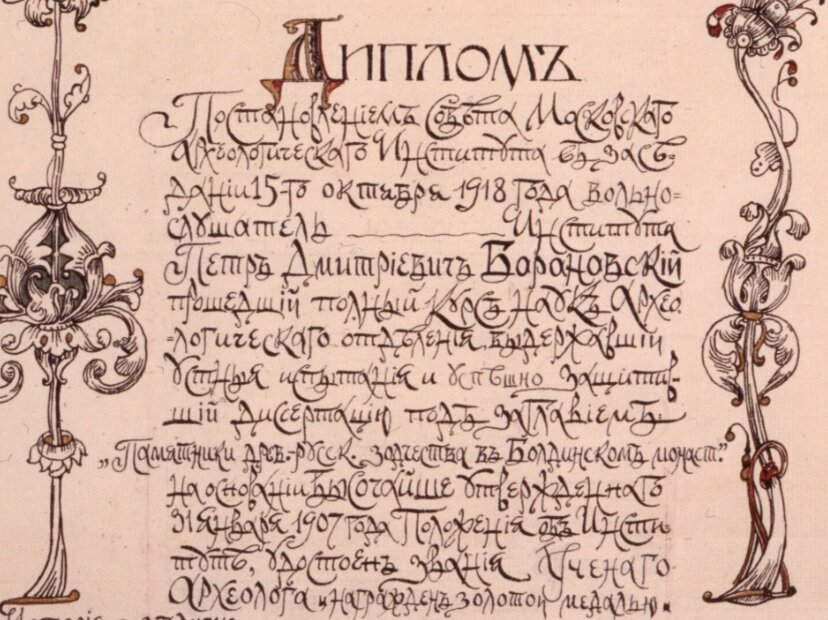 Дипломъ
Постановленіемъ Совѣта Московскаго
Археологическаго Института въ засѣ-
даніи 15-го октября 1918 года вольно-
слушатель Института
Петръ Дмитріевичъ Барановскій
прошедшій полный курсъ наукъ Архео
-логическаго отдѣленія, выдержавшій
устныя испытанія и успѣшно защитив-
шій диссертацію подъ заглавіемъ:
„Памятники древ.-русск. зодчества въ Болдинскомъ монаст."
на основаніи Высочайше утвержденнаго
31 января 1907 года Положенія объ Инсти
тутѣ, удостоенъ званія Ученаго
Археолога и награжденъ золотой медалью.